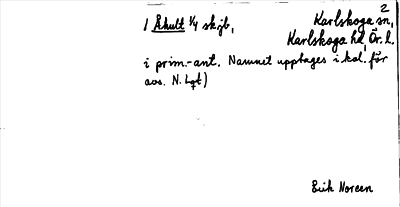 2
1 Åhult 1/4 skjb,
Karlskoga sn,
Karlskoga hd, Ör. l.
i prim.-ant. Namnet upptages i kol. för
avs. N. Lgt)
Erik Noreen